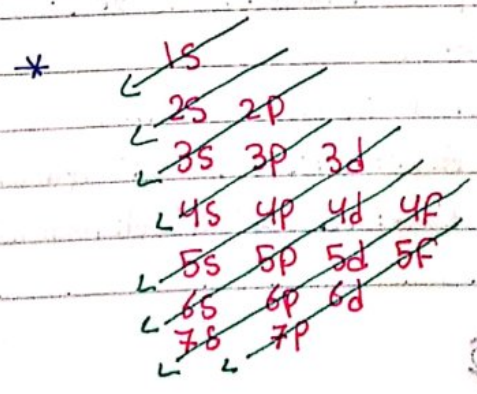 * 1s
2s 2p
3s 3p 3d
4s 4p 4d 4f
5s 5p 5d 5f
6s 6p 6d
7s 7p